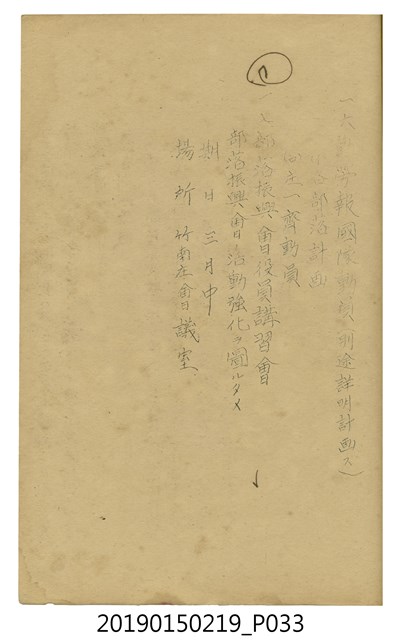 一六 報國隊動員(別途詳明計画ス)
部落計画
庄一齊動員
一七 部落振興會役員講習會
部落振興會ノ活動強化ヲ圖ルタメ
期日 三月中
場所 竹南庄會議室
20190150219_P033